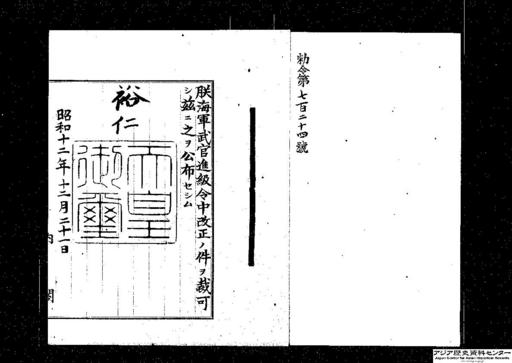 勅令第七百二十四號
朕海軍武官進級令中改正ノ件ヲ裁可
シ茲ニ之ヲ公布セシム
裕仁
天皇
御璽
昭和十二年十二月二十一日
内閣
アジア歴史資料センター
Japan Center for Asian Historical Records